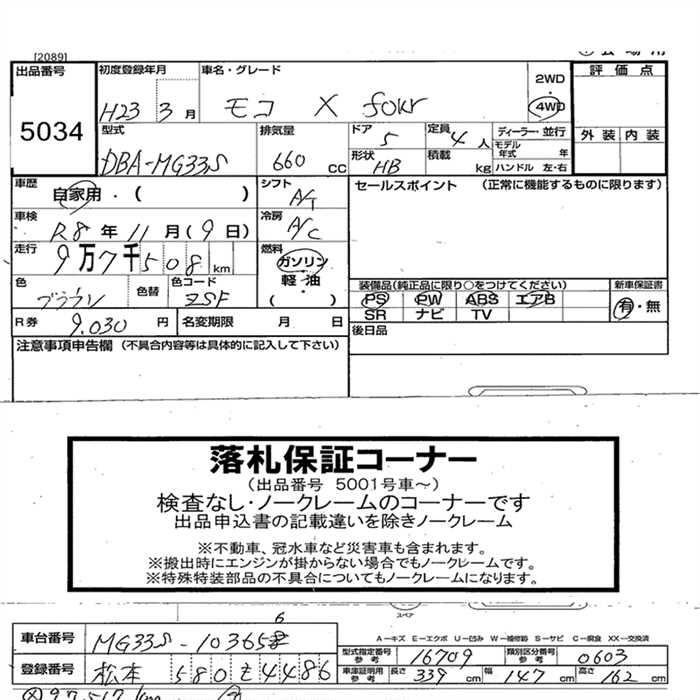 [2089]
出品番号 初度登録年月 車名・グレード 2WD 評価点
5034 H23 3月 モコ X 4WD
型式 排気量 ドア 5 定員 4人 ディーラー・並行 外装 内装
モデル年式 年
DBA-MG33S 660cc 形状 HB 積載 kg ハンドル 左・右
車歴 自家用・( ) シフト A/T セールスポイント (正常に機能するものに限ります)
車検 R8年 11月(9日) 冷房 A/C
走行 9万7千508km 燃料 ガソリン
軽油
( )
色 ブラウン 色替 色コード ZSF 装備品(純正品に限り○をつけてください) 新車保証書
PS PW ABS エアB 有・無
SR ナビ TV
R券 9,030円 名変期限 月 日 後日品
注意事項申告欄 (不具合内容等は具体的に記入して下さい)
落札保証コーナー
(出品番号 5001号車~)
検査なし・ノークレームのコーナーです
出品申込書の記載違いを除きノークレーム
※不動車、冠水車など災害車も含まれます。
※搬出時にエンジンが掛からない場合でもノークレームです。
※特殊特装部品の不具合についてもノークレームになります。
スペア
6
車台番号 MG33S-10365 A-キズ E-エクボ U-凹み W-補修跡 S-サビ C-腐食 XX-交換済
型式指定番号 参考 16709 類別区分番号 参考 0603
登録番号 松本 580 Z 4486 車庫証明用 参考 長さ 339cm 幅 147cm 高さ 162cm
97,517km